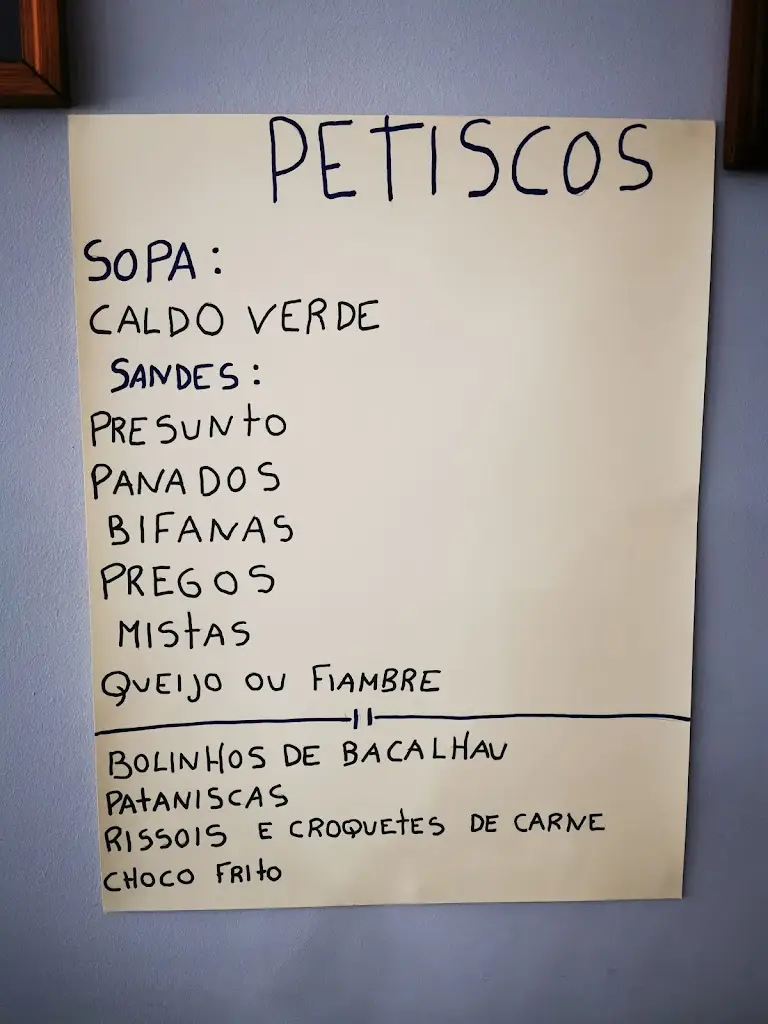 PETISCOS
SOPA:
CALDO VERDE
SANDES:
PRESUNTO
PANADOS
BIFANAS
PREGOS
MISTAS
QUEIJO OU FIAMBRE
BOLINHOS DE BACALHAU
PATANISCAS
RISSOIS E CROQUETES DE CARNE
CHOCO FRITO